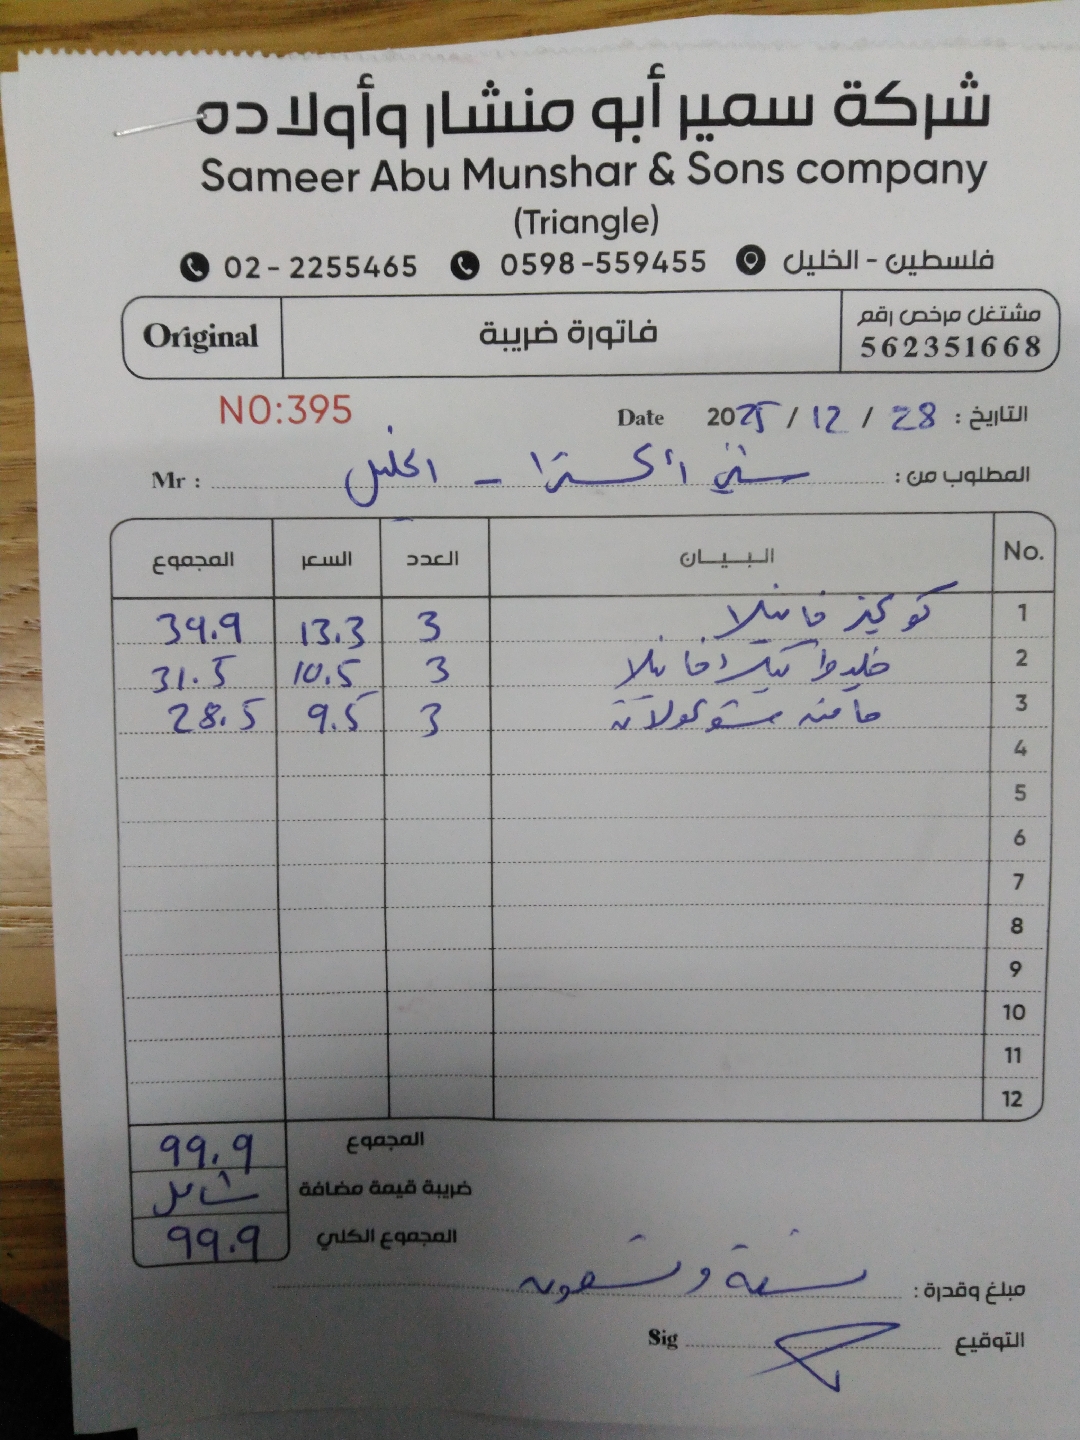 شركة سمير أبو منشار وأولاده
Sameer Abu Munshar & Sons company
(Triangle)
02-2255465 0598-559455 فلسطين - الخليل
Original فاتورة ضريبة مشتغل مرخص رقم
562351668
NO:395 Date 2025 / 12 / 28 التاريخ :
المطلوب من : سنتي اكسترا - الخليل Mr :
No. البيان العدد السعر المجموع
1 كوكيز فانيلا 3 13.3 39.9
2 فانيلا 3 10.5 31.5
3 شوكولاتة 3 9.5 28.5
4
5
6
7
8
9
10
11
12
المجموع 99.9
ضريبة قيمة مضافة شامل
المجموع الكلي 99.9
مبلغ وقدرة : تسعة وتسعون
التوقيع Sig